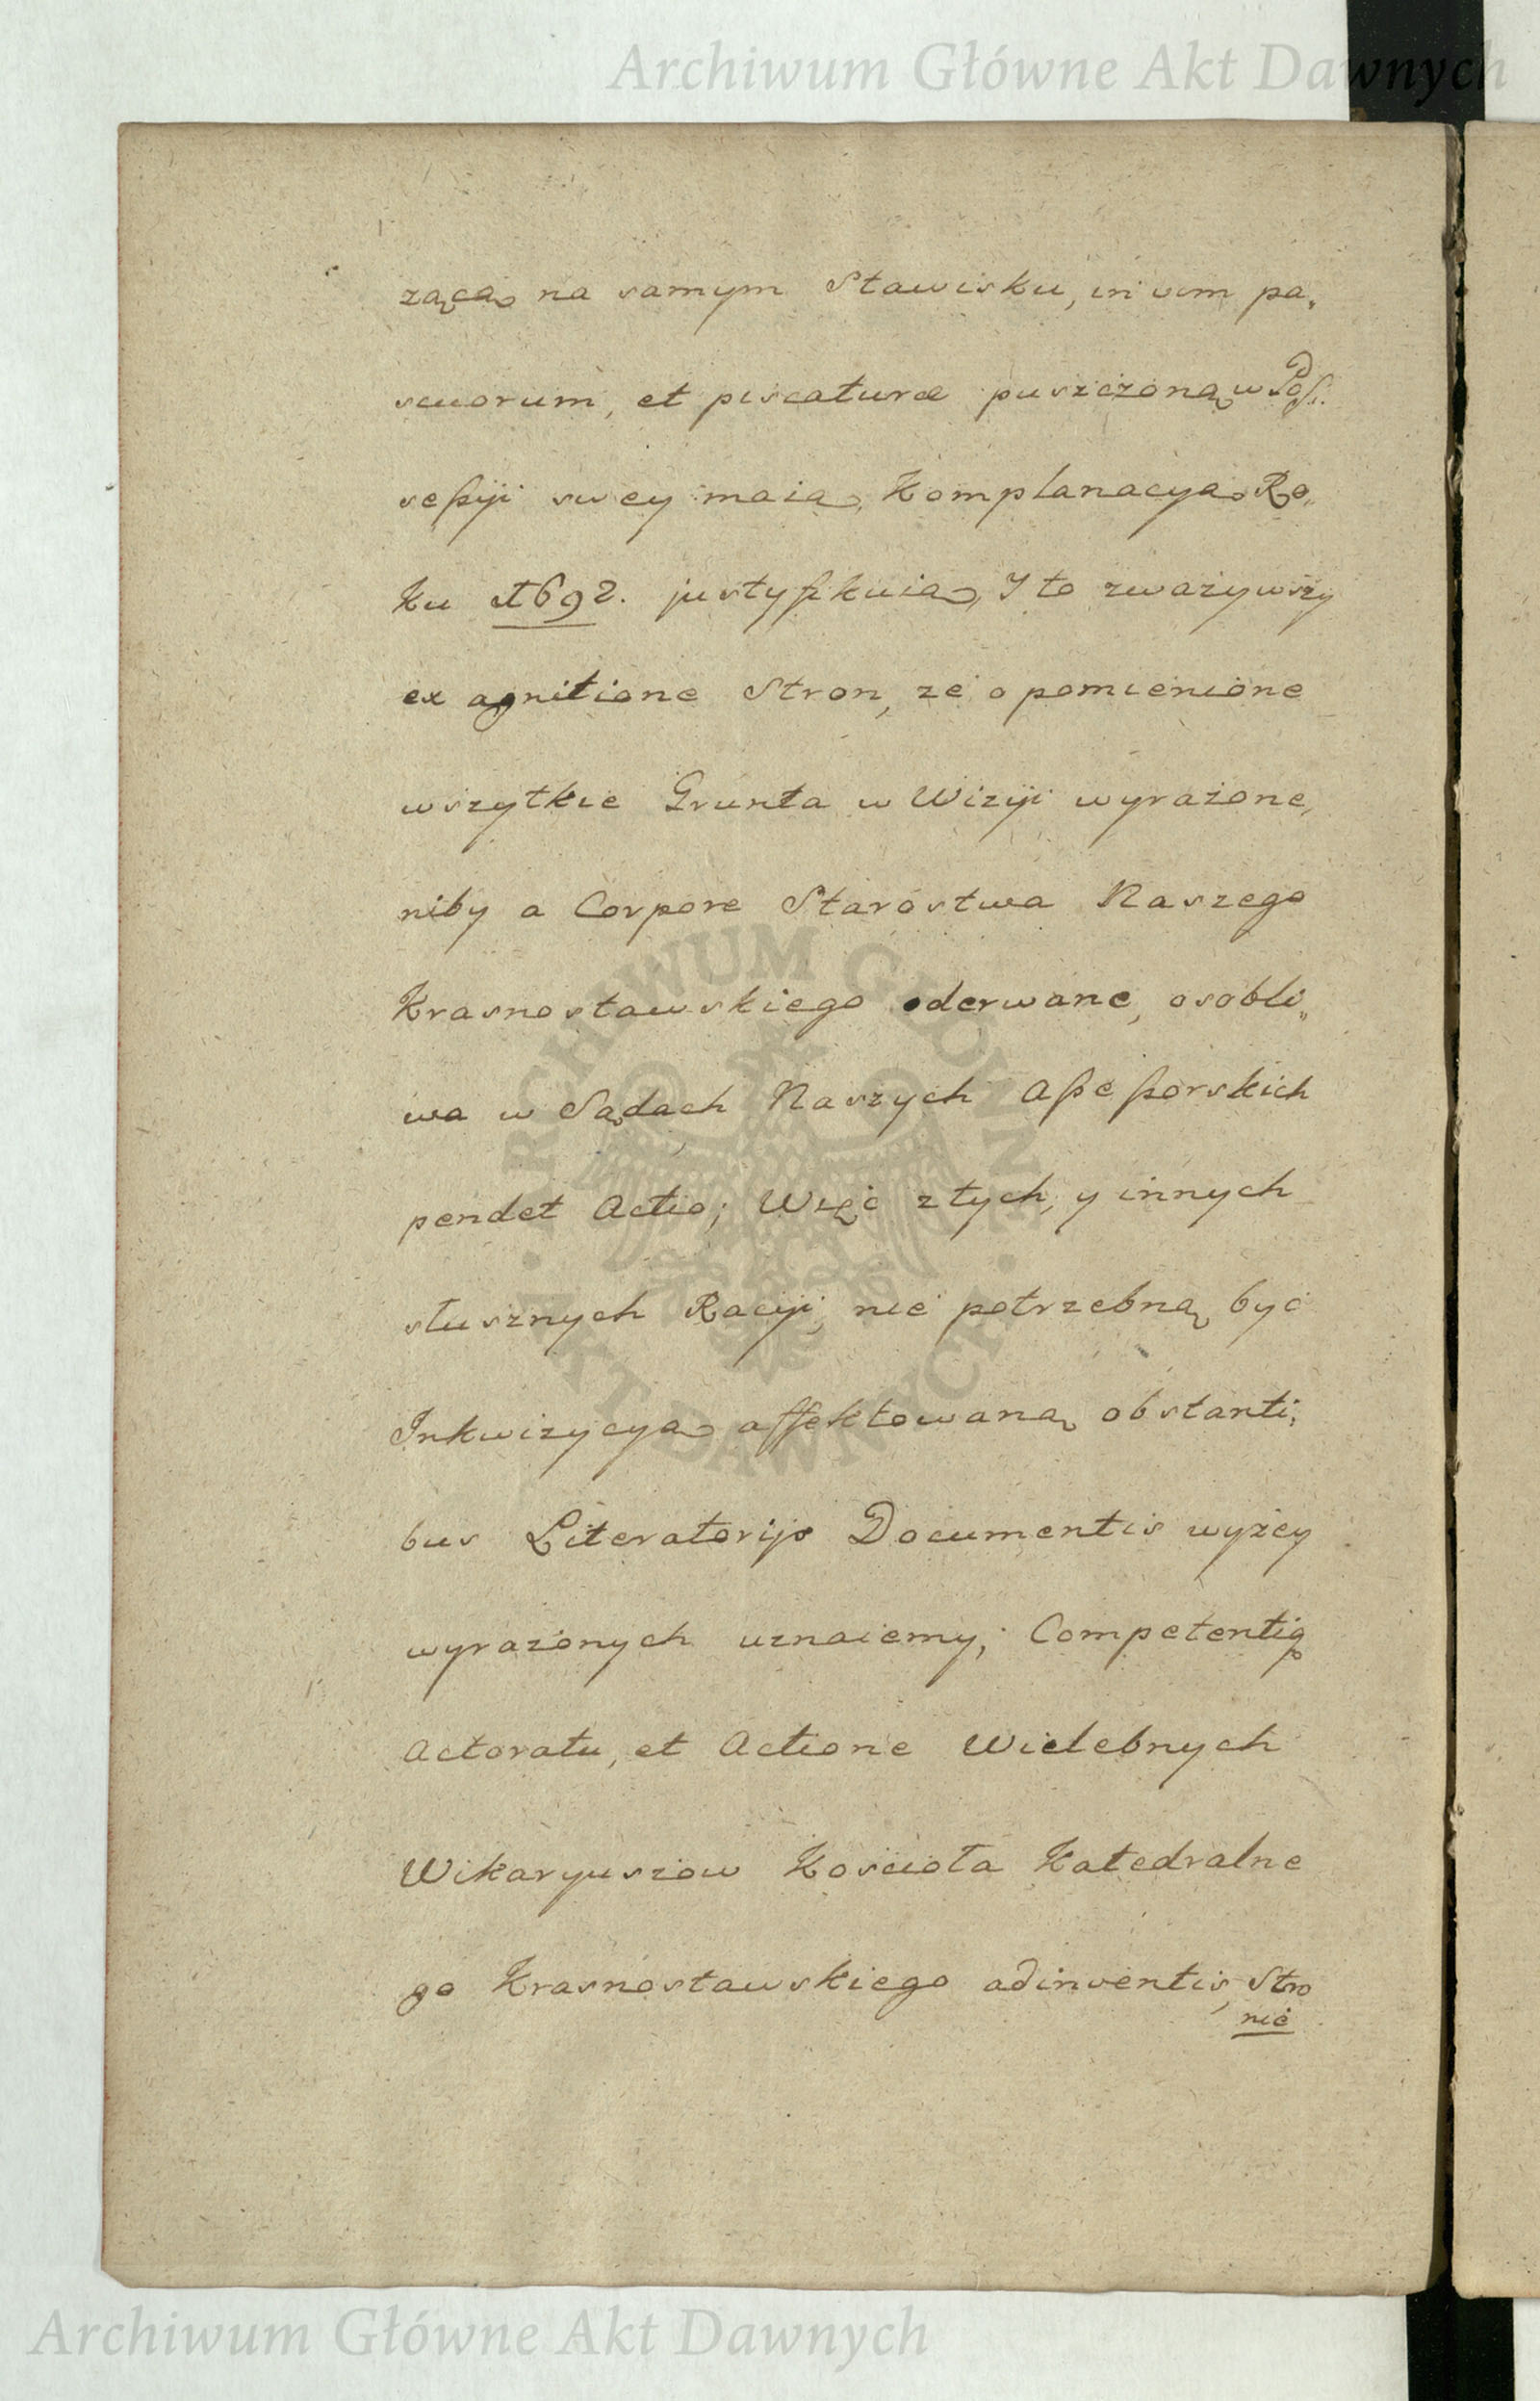 Archiwum Główne Akt Dawnych
żącą na samym Stawisku, in vim pa,
scuorum, et piscaturæ puszczoną w Pos,
seßyi swey maią, Komplanacyą Ro,,
ku 1692. justyfikuią, Y to zwazywszy
ex agnitione Stron, ze o pomienione
wszytkie Grunta w Wizyi wyrażone,
niby a Corpore Starostwa Naszego
Krasnostawskiego oderwane, osobli,,
wa w Sądach Naszych Aßeßorskich
pendet Actio; Więc z tych, y innych
słusznych Racyi, nie potrzebną być
Inkwizycyą affektowaną obstanti,
bus Literatorijs Documentis wyżey
wyrażonych uznaiemy; Competentią
Actoratu, et Actione Wielebnych
Wikaryuszow Kościoła Katedralne
go Krasnostawskiego adinventis, Stro
nie
ARCHIWUM GŁÓWNE • AKT DAWNYCH •
Archiwum Główne Akt Dawnych